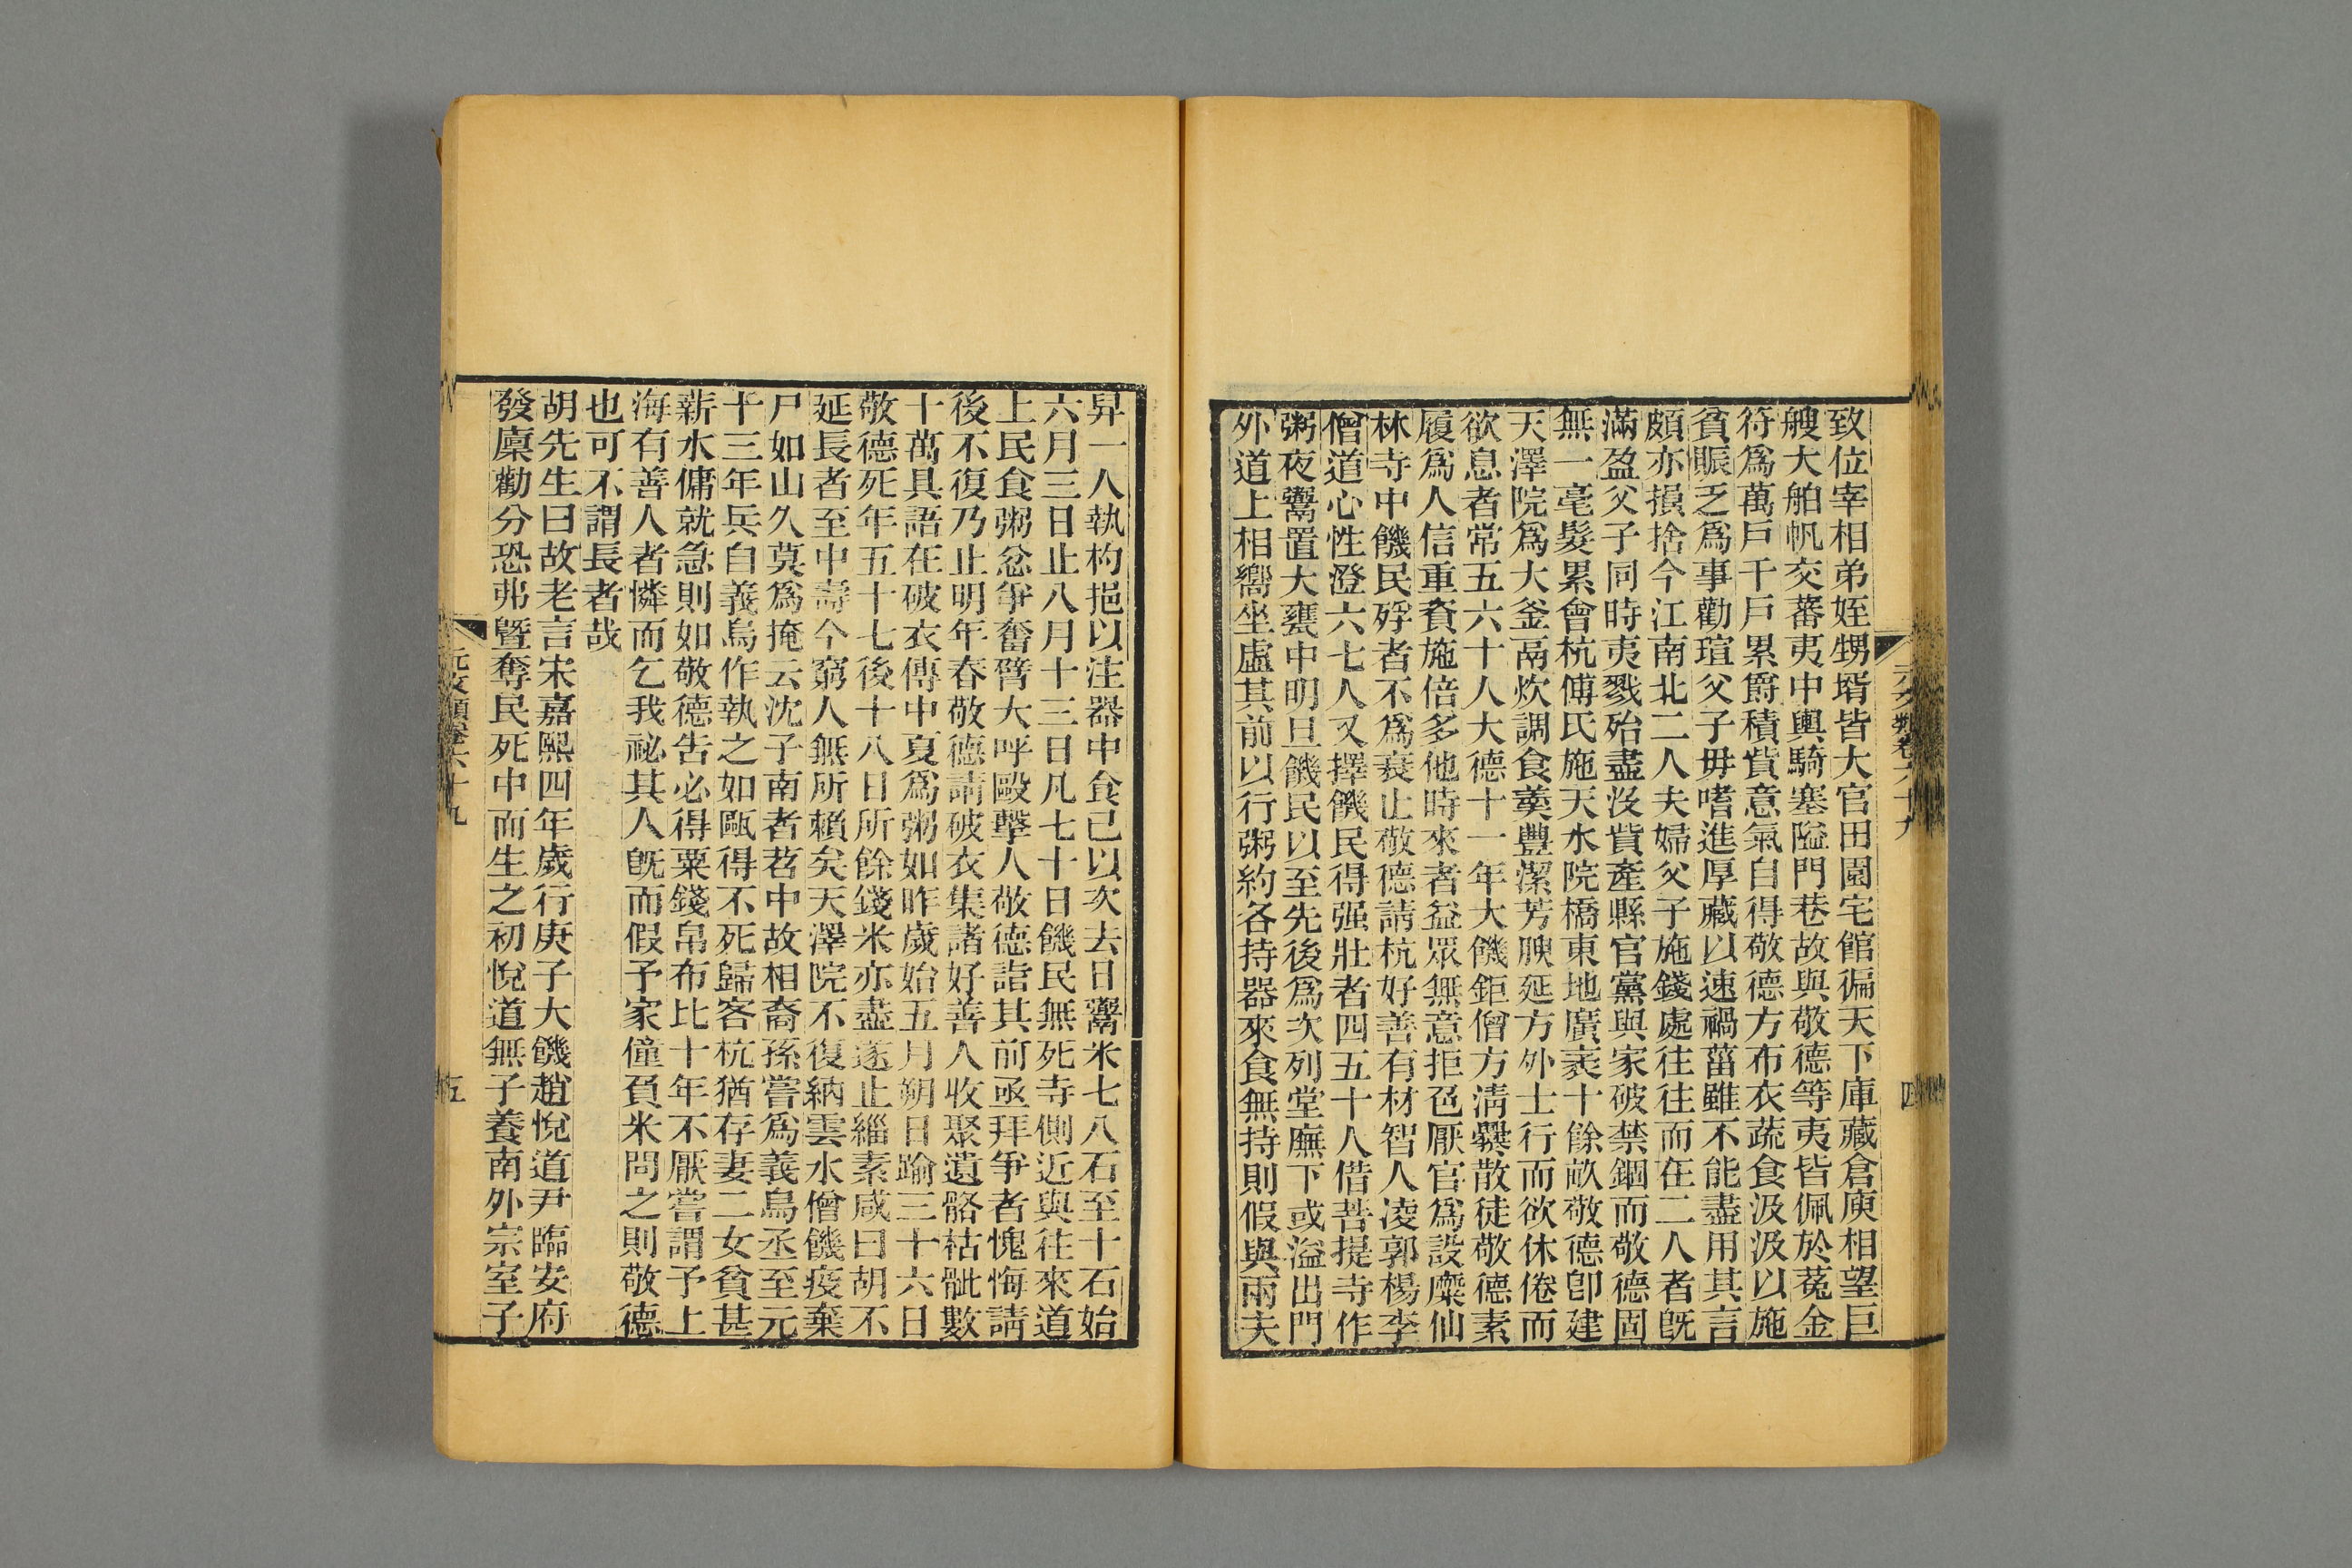 致位宰相弟姪甥壻皆大官田園宅館徧天下庫藏倉庾相望巨
艘大舶帆交蕃夷中輿騎塞隘門巷故與敬德等夷皆佩於菟金
符爲萬戶千戶累爵積貲意氣自得敬德方布衣蔬食汲汲以施
貧賑乏爲事勸瑄父子毋嗜進厚藏以速禍菑雖不能盡用其言
頗亦損捨今江南北二人夫婦父子施錢處往往而在二人者旣
滿盈父子同時夷戮殆盡沒貲產縣官黨與家破禁錮而敬德固
無一毫髮累會杭傅氏施天水院橋東地廣袤十餘畝敬德卽建
天澤院爲大釜鬲炊調食羮豐潔芳腴延方外士行而欲休倦而
欲息者常五六十人大德十一年大饑鉅僧方淸爨散徒敬德素
履爲人信重資施倍多他時來者益眾無意拒召厭官爲設糜仙
林寺中饑民殍者不爲衰止敬德請杭好善有材智人凌郭楊李
僧道心性澄六七人又擇饑民得强壯者四五十人借菩提寺作
粥夜鬻置大甕中明旦饑民以至先後爲次列堂廡下或溢出門
外道上相嚮坐虛其前以行粥約各持器來食無持則假與兩夫
元文類卷六十九
四
舁一人執杓挹以注器中食已以次去日鬻米七八石至十石始
六月三日止八月十三日凡七十日饑民無死寺側近與往來道
上民食粥忿爭奮臂大呼毆擊人敬德詣其前亟拜爭者愧悔請
後不復乃止明年春敬德請破衣集諸好善人收聚遺骼枯骴數
十萬具語在破衣傳中夏爲粥如昨歲始五月朔日踰三十六日
敬德死年五十七後十八日所餘錢米亦盡遂止緇素咸曰胡不
延長者至中壽今窮人無所賴矣天澤院不復納雲水僧饑疫棄
尸如山久莫爲掩云沈子南者苕中故相裔孫嘗爲義烏丞至元
十三年兵自義烏作執之如甌得不死歸客杭猶存妻二女貧甚
薪水傭就急則如敬德吿必得粟錢帛布比十年不厭嘗謂予上
海有善人者憐而乞我祕其人旣而假予家僮負米問之則敬德
也可不謂長者哉
胡先生曰故老言宋嘉熙四年歲行庚子大饑趙悅道尹臨安府
發廩勸分恐弗曁奪民死中而生之初悅道無子養南外宗室子
元文類卷六十九
五